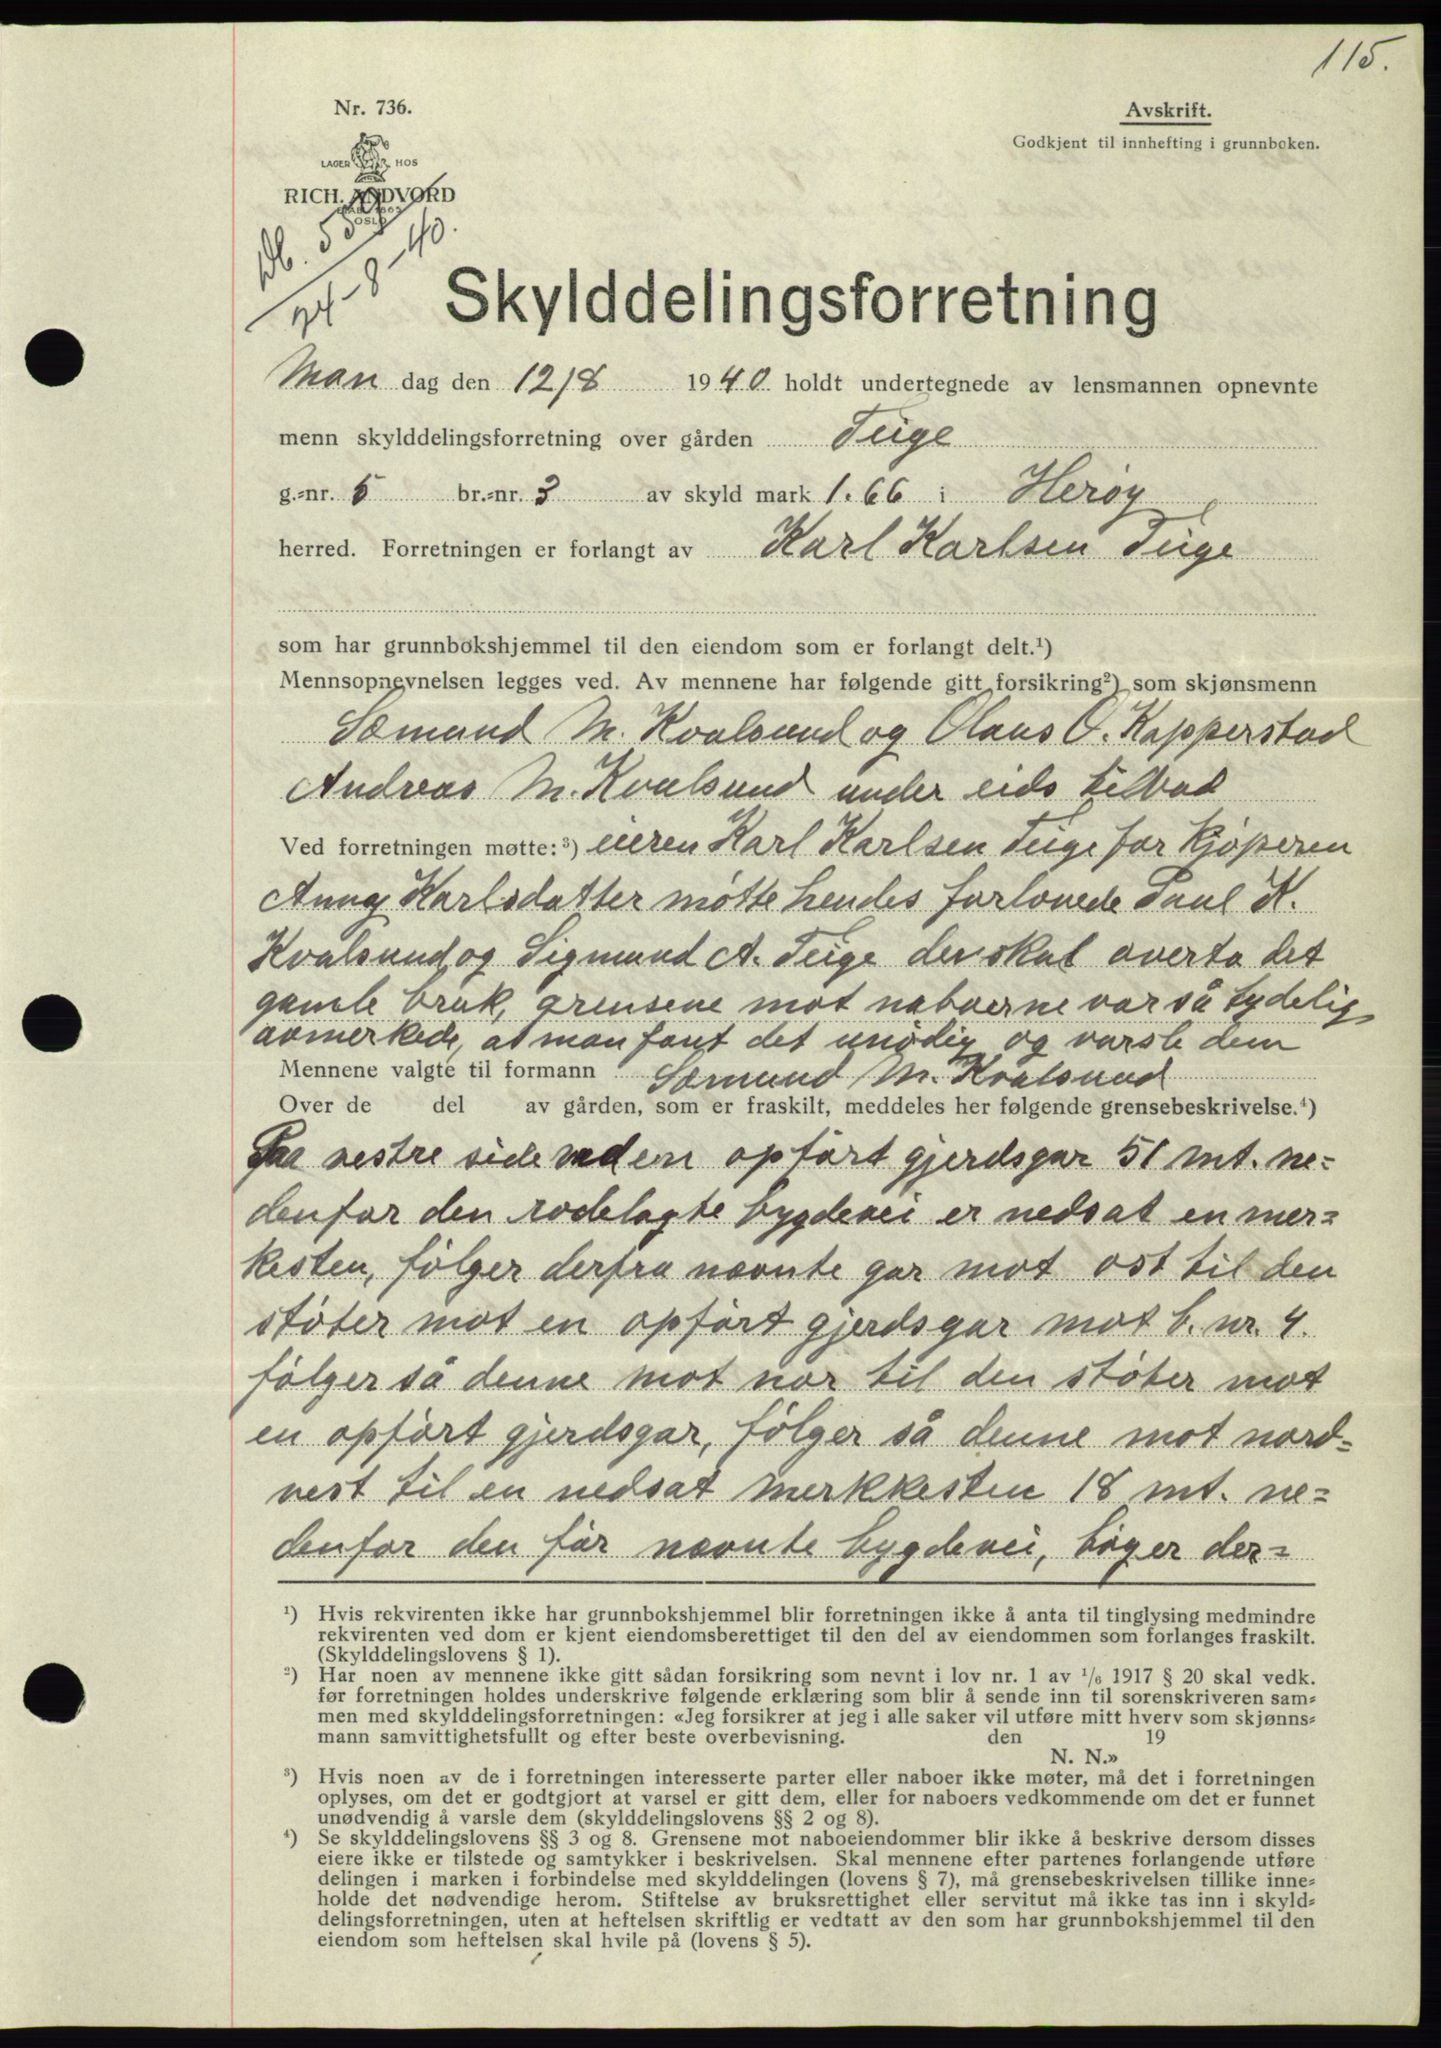 115.
Nr. 736.
Avskrift.
Godkjent til innhefting i grunnboken.
LAGER HOS
RICH. ANDVORD
OSLO
Db. 559
24-8-40.
Skylddelingsforretning
Man dag den 12/8 1940 holdt undertegnede av lensmannen opnevnte
menn skylddelingsforretning over gården Teige
g.=nr. 5 br.=nr. 3 av skyld mark 1.66 i Herøy
herred. Forretningen er forlangt av Karl Karlsen Teige
som har grunnbokshjemmel til den eiendom som er forlangt delt.¹)
Mennsopnevnelsen legges ved. Av mennene har følgende gitt forsikring²) som skjønsmenn
Sæmund M. Kvalsund og Olaus O. Kopperstad
Andreas M. Kvalsund under eids tilbud
Ved forretningen møtte:³) eieren Karl Karlsen Teige for kjøperen
Anny Karlsdatter møtte hendes forlovede Paul K.
Kvalsund og Sigmund A. Teige der skal overta det
gamle bruk, grensene mot naboerne var så tydelig
avmerkede, at man fant det unødig og varsle dem
Mennene valgte til formann Sæmund M. Kvalsund
Over de del av gården, som er fraskilt, meddeles her følgende grensebeskrivelse.⁴)
Paa vestre side ved en opført gjerdsgar 51 mt. ne=
denfor den rodelagte bygdevei er nedsat en mer=
kesten, følger derfra nævnte gar mot ost til den
støter mot en opført gjerdsgar mot b. nr. 4.
følger så denne mot nor til den støter mot
en opført gjerdsgar, følger så denne mot nord=
vest til en nedsat merkkesten 18 mt. ne=
denfor den før nævnte bygdevei, bøger der=
¹) Hvis rekvirenten ikke har grunnbokshjemmel blir forretningen ikke å anta til tinglysing medmindre
rekvirenten ved dom er kjent eiendomsberettiget til den del av eiendommen som forlanges fraskilt.
(Skylddelingslovens § 1).
²) Har noen av mennene ikke gitt sådan forsikring som nevnt i lov nr. 1 av 1/6 1917 § 20 skal vedk.
før forretningen holdes underskrive følgende erklæring som blir å sende inn til sorenskriveren sam=
men med skylddelingsforretningen: «Jeg forsikrer at jeg i alle saker vil utføre mitt hverv som skjønns=
mann samvittighetsfullt og efter beste overbevisning. den 19
N. N.»
³) Hvis noen av de i forretningen interesserte parter eller naboer ikke møter, må det i forretningen
oplyses, om det er godtgjort at varsel er gitt dem, eller for naboers vedkommende om det er funnet
unødvendig å varsle dem (skylddelingslovens §§ 2 og 8).
⁴) Se skylddelingslovens §§ 3 og 8. Grensene mot naboeiendommer blir ikke å beskrive dersom disses
eiere ikke er tilstede og samtykker i beskrivelsen. Skal mennene efter partenes forlangende utføre
delingen i marken i forbindelse med skylddelingen (lovens § 7), må grensebeskrivelsen tillike inne=
holde det nødvendige herom. Stiftelse av bruksrettighet eller servitut må ikke tas inn i skyld=
delingsforretningen, uten at heftelsen skriftlig er vedtatt av den som har grunnbokshjemmel til den
eiendom som heftelsen skal hvile på (lovens § 5).